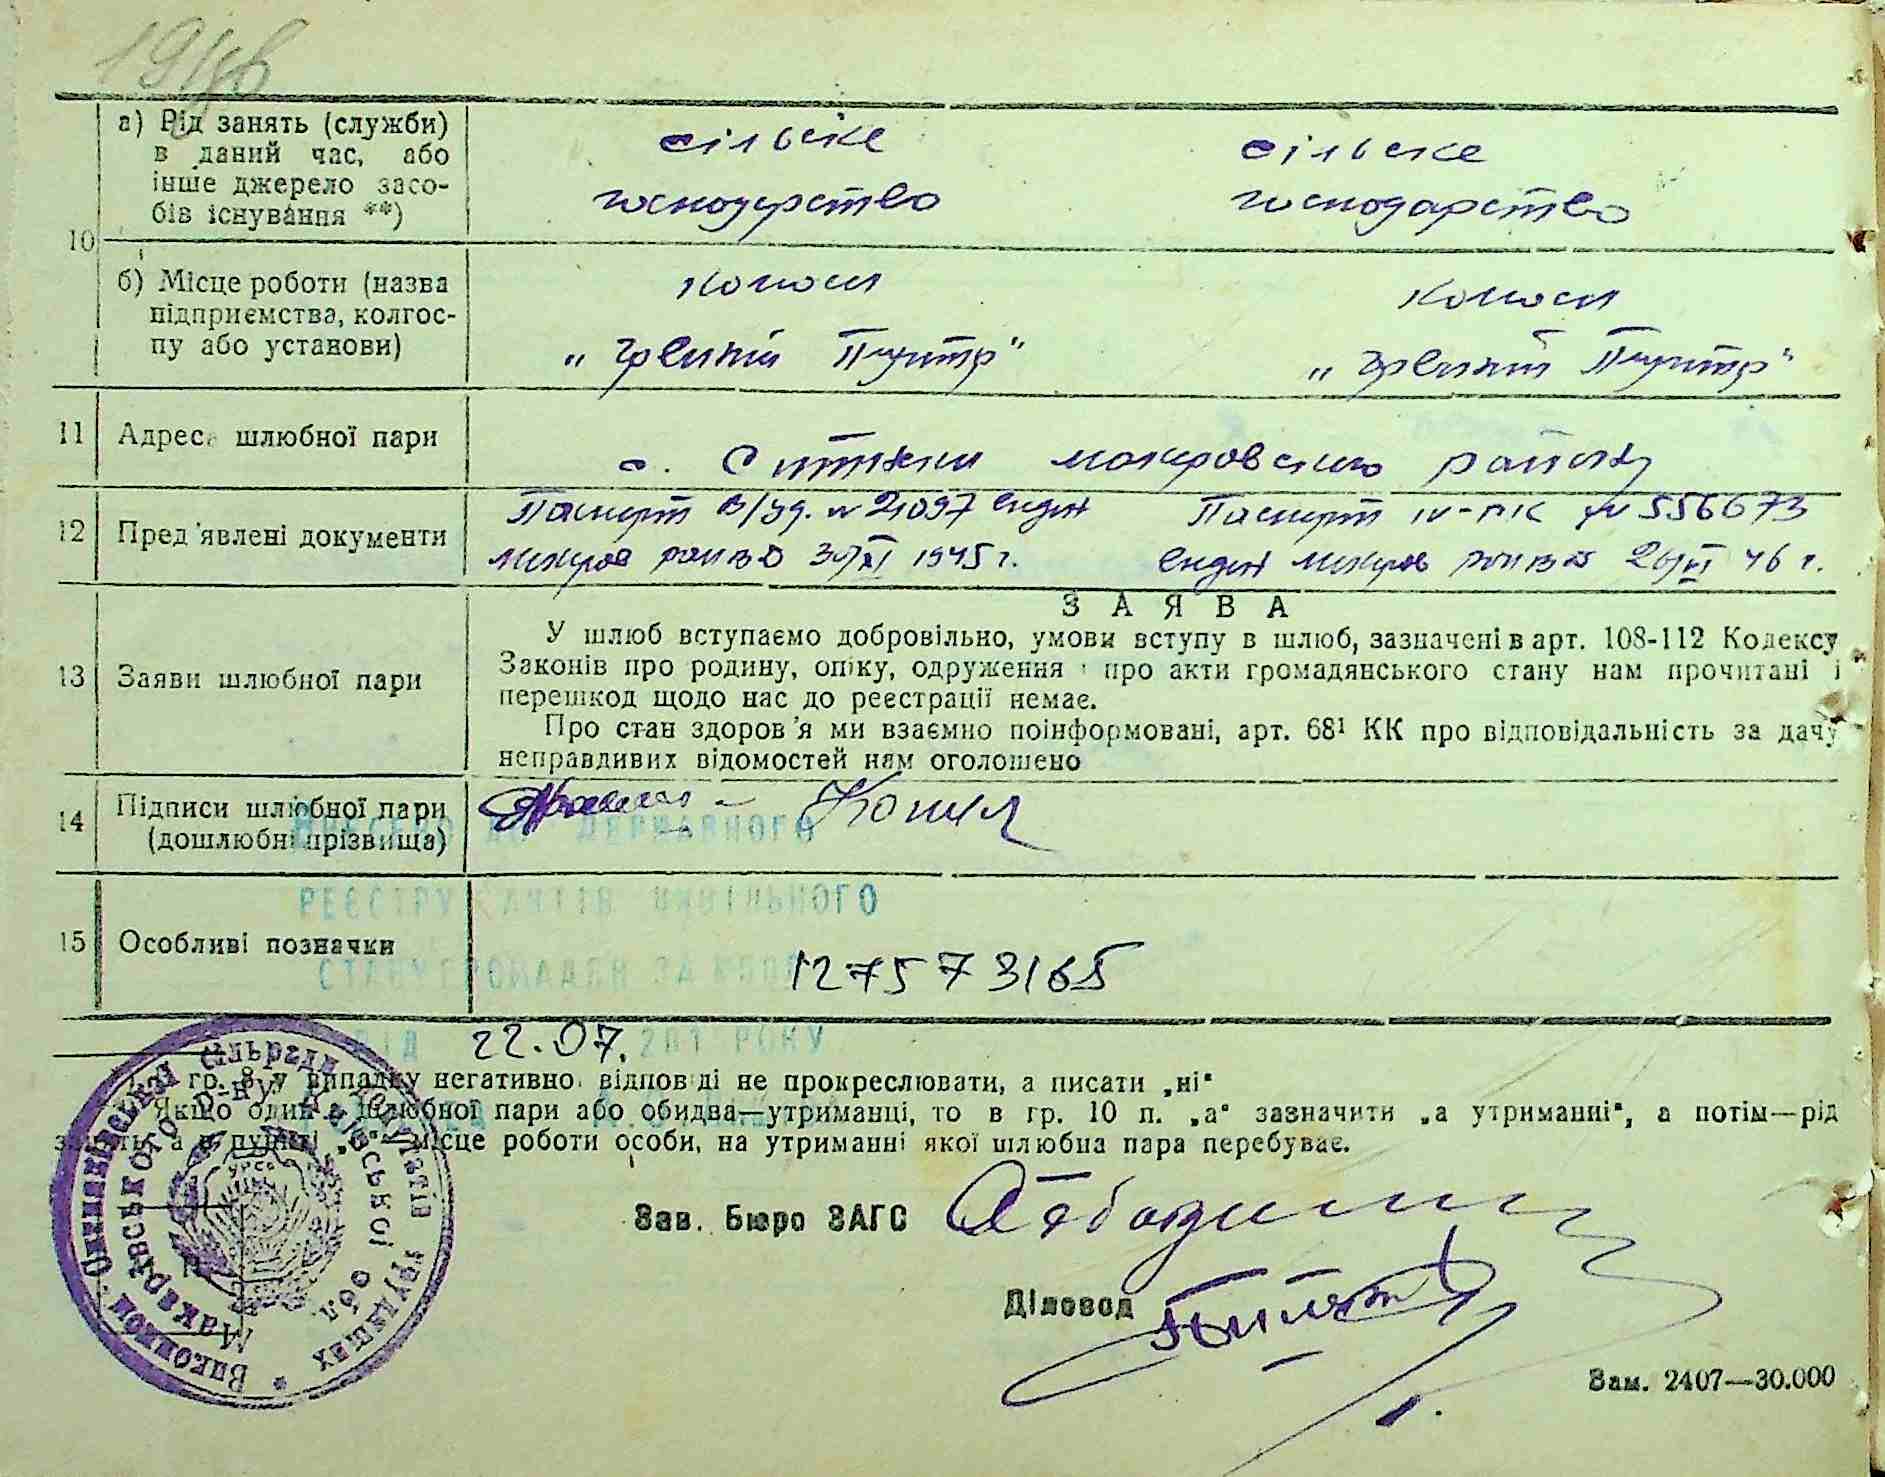 1946
10
а) Рід занять (служби) в даний час, або інше джерело засобів існування **)
сільське
господарство
сільське
господарство
б) Місце роботи (назва підприємства, колгоспу або установи)
колгосп
колгосп
11 Адреса шлюбної пари
с. Ситняки макаровського району
12 Пред'явлені документи
Паспорт № 21097
30/XI 1945 г.
Паспорт IV-ПК № 556673
46 г.
13 Заяви шлюбної пари
ЗАЯВА
У шлюб вступаємо добровільно, умови вступу в шлюб, зазначені в арт. 108-112 Кодексу
Законів про родину, опіку, одруження і про акти громадянського стану нам прочитані і
перешкод щодо нас до реєстрації немає.
Про стан здоров'я ми взаємно поінформовані, арт. 68¹ КК про відповідальність за дачу
неправдивих відомостей нам оголошено
14 Підписи шлюбної пари
(дошлюбні прізвища)
ВНЕСЕНО ДО ДЕРЖАВНОГО
РЕЄСТРУ АКТІВ ЦИВІЛЬНОГО
СТАНУ ГРОМАДЯН ЗА
15 Особливі позначки
127573165
ВІД 22.07. 201 РОКУ
гр. 8 у випадку негативної відповіді не прокреслювати, а писати „ні“
Якщо один з шлюбної пари або обидва—утриманці, то в гр. 10 п. „а“ зазначити „а утриманні“, а потім—рід
занять, а в пункті „б“ місце роботи особи, на утриманні якої шлюбна пара перебуває.
Зав. Бюро ЗАГС
Діловод
Виконком Ситняківської сільради депутатів трудящих
Макарівського р-ну Київської обл.
УРСР
Зам. 2407—30.000